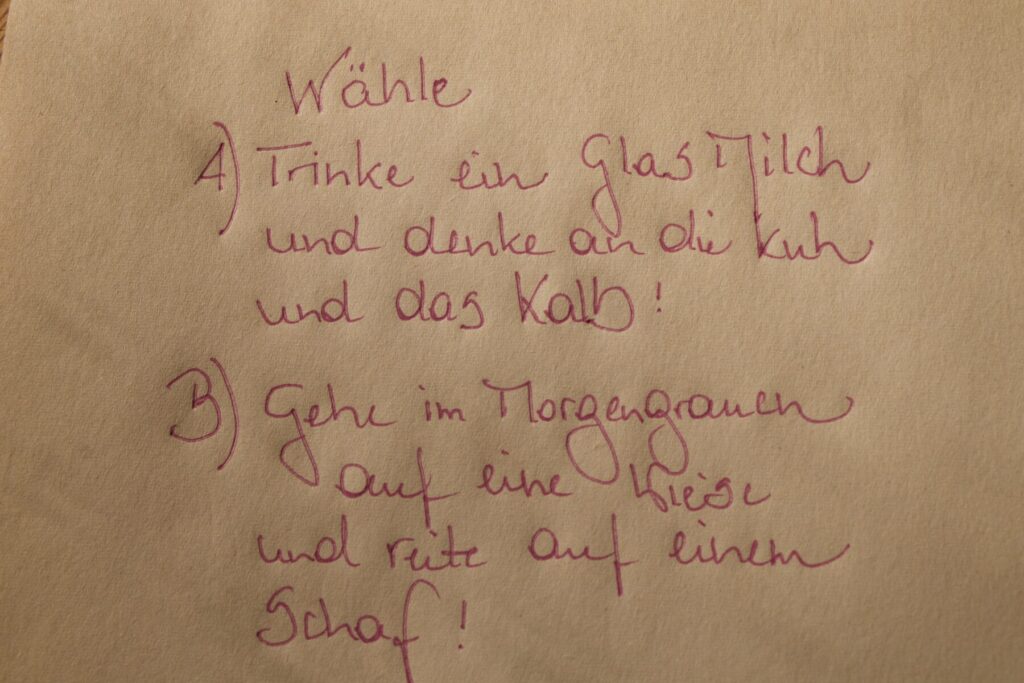 Wähle
A) Trinke ein Glas Milch
und denke an die Kuh
und das Kalb!
B) Gehe im Morgengrauen
auf eine Wiese
und reite auf einem
Schaf!